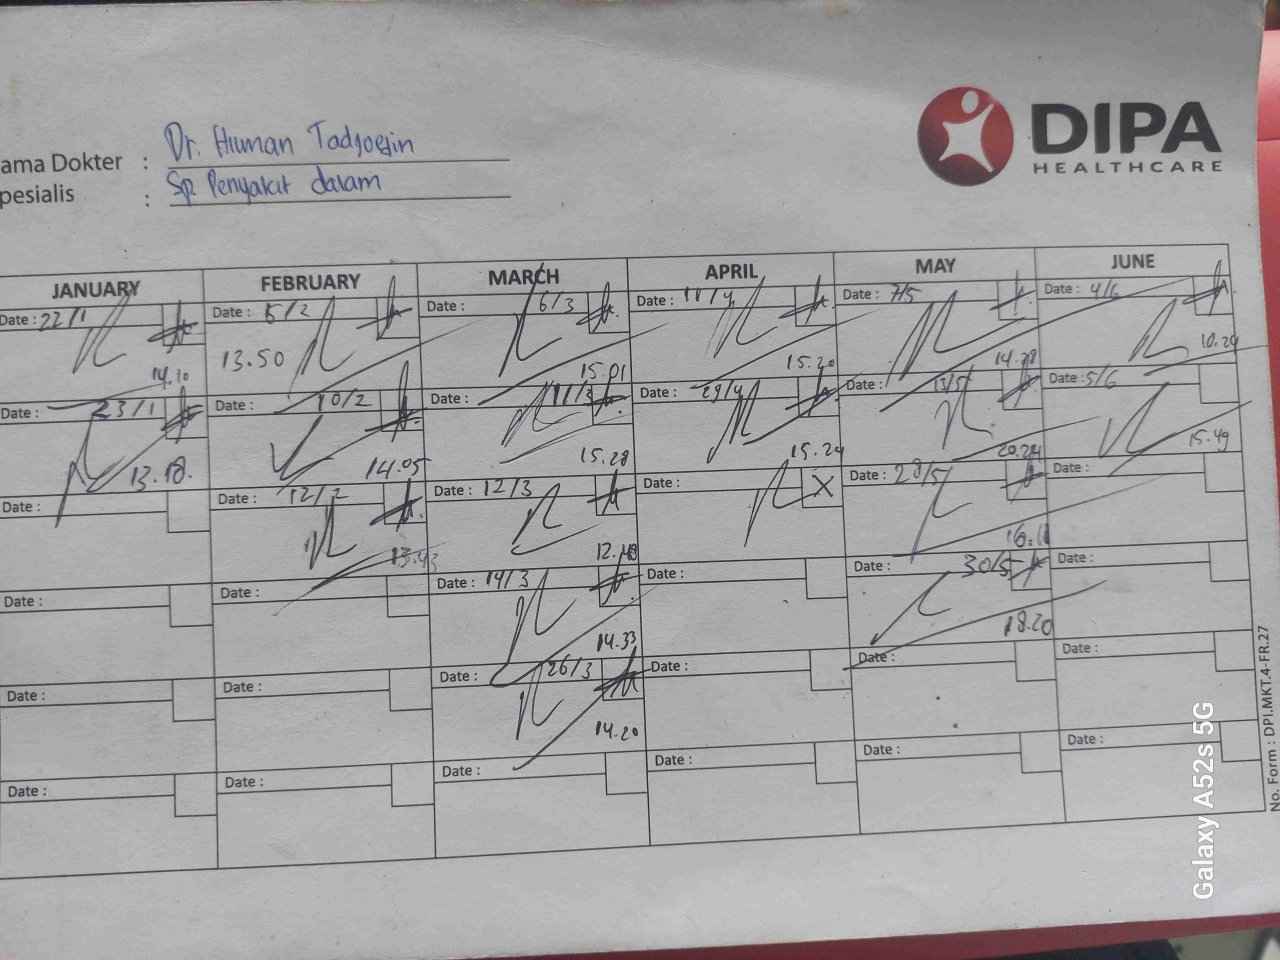 DIPA
HEALTHCARE
ama Dokter : Dr. Hiuman Tadjoedin
pesialis : Sp. Penyakit dalam
JANUARY FEBRUARY MARCH APRIL MAY JUNE
Date : 22/1 Date : 5/2 Date : 6/3 Date : 11/4 Date : 7/5 Date : 4/6
14.10 13.50 15.01 15.20 14.28 10.29
Date : 23/1 Date : 10/2 Date : 11/3 Date : 29/4 Date : 13/5 Date : 5/6
13.18. 14.05 15.28 15.29 20.24 15.49
Date : Date : 12/2 Date : 12/3 Date : X Date : 28/5 Date :
13.43 12.48 16.11
Date : Date : Date : 14/3 Date : Date : 30/5 Date :
14.33 18.20
Date : Date : Date : 26/3 Date : Date : Date :
14.20
Date : Date : Date : Date : Date : Date :
No. Form : DPI.MKT.4-FR.27
Galaxy A52s 5G